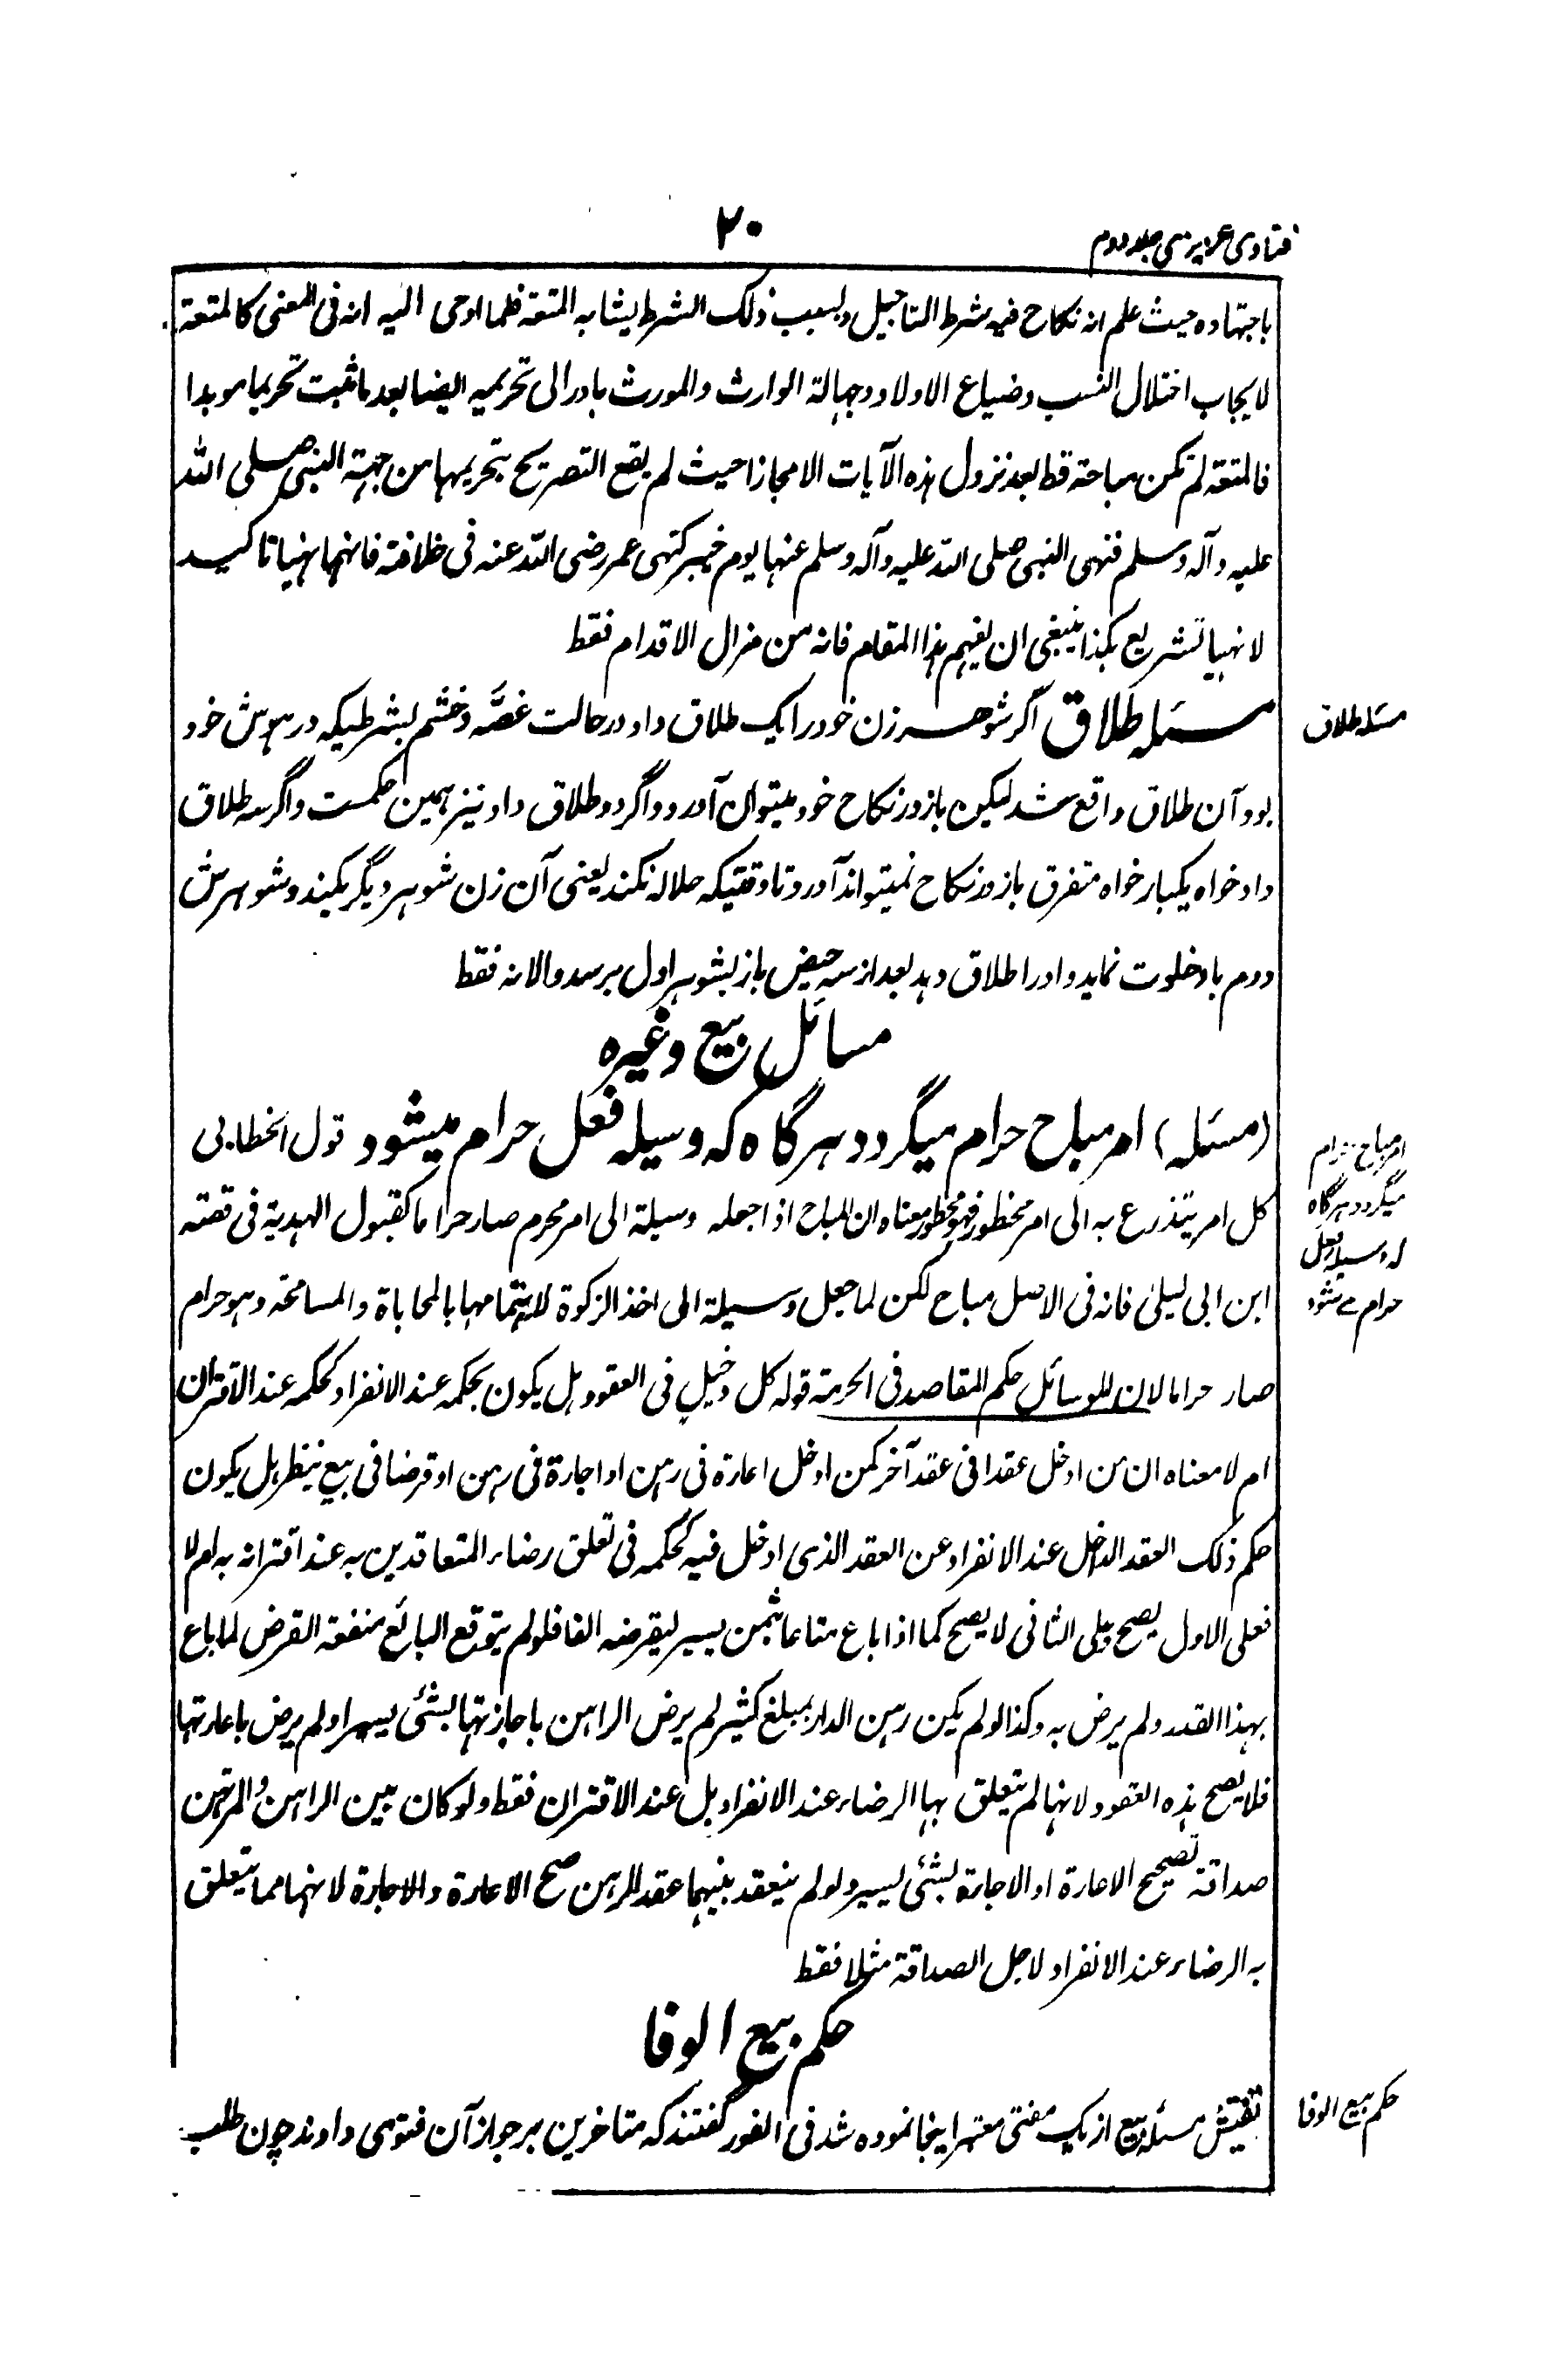 ۲۰
فتاوی عزیزی جلد دوم
باجتهاده حیث علم انه نکاح فیه شرط التاجیل وبسبب ذلک الشرط یشابه المتعة فلما اوحی الیه انه فی المعنی کالمتعة
لایجاب اختلال النسب وضیاع الاولاد وجهالة الوارث والمورث بادر الی تحریمه ایضا بعد ما ثبت تحریما موبدا
فالمتعة لم تکن مباحة قط بعد نزول هذه الآیات الا مجازا حیث لم یقع التصریح بتحریمها من جهة النبی صلی الله
علیه وآله وسلم فنهی النبی صلی الله علیه وآله وسلم عنها یوم خیبر کنهی عمر رضی الله عنه فی خلافته فانهما نهیا تاکید
لا نهیا تشریع هکذا ینبغی ان یفهم هذا المقام فانه من مزال الاقدام فقط
مسئله طلاق اگر شوهر زن خود را یک طلاق داد در حالت غصّه و خشم بشرطیکه در هوش خود
مسئله طلاق
بود آن طلاق واقع شد لیکن باز در نکاح خود میتوان آورد و اگر دو طلاق داد نیز همین حکمست و اگر سه طلاق
داد خواه یکبار خواه متفرق باز در نکاح نمیتواند آورد تا وقتیکه حلاله نکند یعنی آن زن شوهر دیگر بکند و شوهرش
دوم با و خلوت نماید و او را طلاق دهد بعد از سه حیض باز بشوهر اول برسد والا نه فقط
مسائل بیع وغیره
(مسئله) امر مباح حرام میگردد هرگاه که وسیله فعل حرام میشود قول الخطابی
امر مباح حرام
میگردد هرگاه
که وسیله فعل
حرام مے شود
کل امر یتذرع به الی امر محظور فهو محظور معناه ان المباح اذا جعله وسیلة الی امر محرم صار حراما کقبول الهدیة فی قصة
ابن ابی لیلیٰ فانه فی الاصل مباح لکن لما جعل وسیلة الی اخذ الزکوة لاهتمامها بالمحاباة والمسامحة وهو حرام
صار حراما لان للوسائل حکم المقاصد فی الحرمة قوله کل دخیل فی العقود هل یکون بحکمه عند الانفراد کحکمه عند الاقتران
ام لا معناه ان من ادخل عقدا فی عقد آخر کمن ادخل اعارة فی رهن او اجارة فی رهن او قرضا فی بیع ینظر هل یکون
حکم ذلک العقد الداخل عند الانفراد عن العقد الذی ادخل فیه کحکمه فی تعلق رضاء المتعاقدین به عند اقترانه به ام لا
فعلی الاول یصح وعلی الثانی لا یصح کما اذا باع متاعا بثمن یسیر لیقرضه الفا فلو لم یتوقع البائع منفعة القرض لما باع
بهذا القدر ولم یرض به وکذا لو لم یکن رهن الدار بمبلغ کثیر لم یرض الراهن باجازتها بشئی یسیر او لم یرض باعارتها
فلا یصح هذه العقود لانها لم یتعلق بها الرضاء عند الانفراد بل عند الاقتران فقط ولو کان بین الراهن والمرتهن
صداقة تصحیح الاعارة او الاجارة بشئی یسیر ولو لم ینعقد بینهما عقد الرهن صح الاعارة والاجارة لانهما مما یتعلق
به الرضاء عند الانفراد لاجل الصداقة مثلا فقط
حکم بیع الوفا
تفتیش مسئله بیع از یک مفتی معتبر اینجا نموده شد فی الفور گفتند که متاخرین بر جواز آن فتوی دادند چون طلب
حکم بیع الوفا